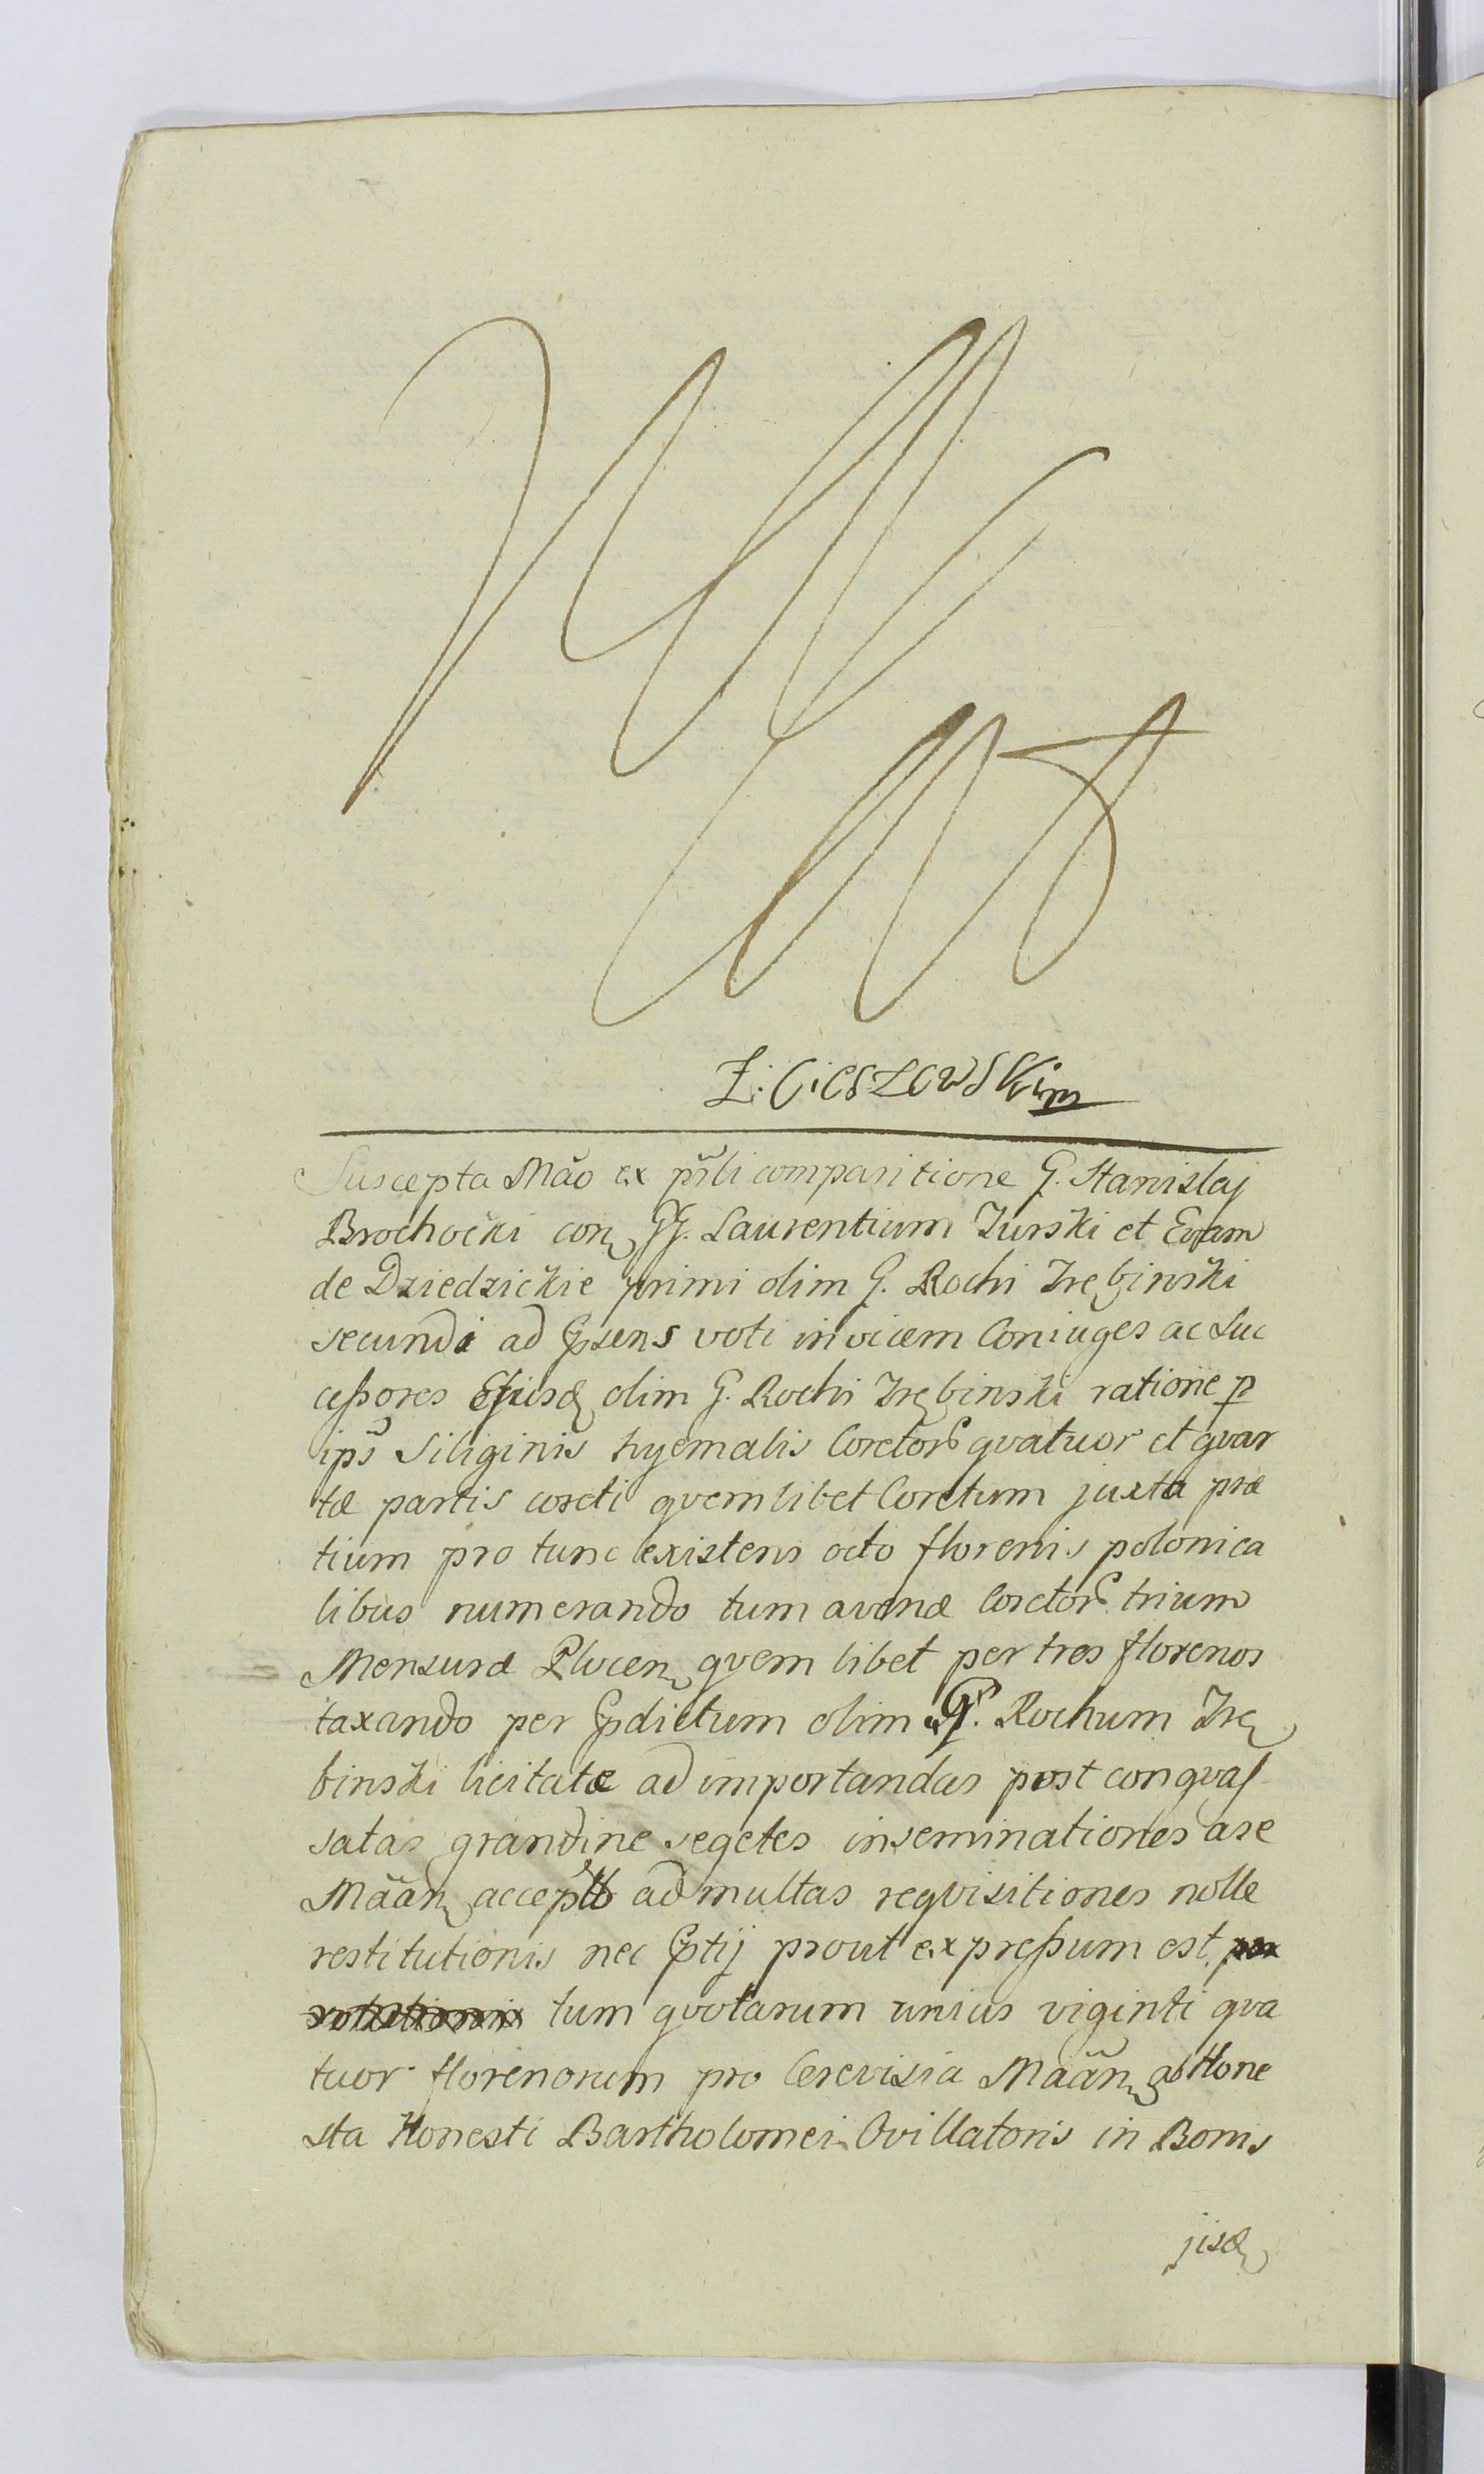 Ł. Cieszewskim
Suscepta Mão ex pñli comparitione G. Stanislaj
Brochocki con GG. Laurentium Turski et Evam
de Dziedzickie primi olim G. Rochi Trębinski
secundi ad pñsens voti invicem Coniuges ac Suc
ceßores Ejusd olim G. Rochi Trębinski ratione p
ips Siliginis hyemalis Coretor quatuor et quar
tæ partis coreti quemlibet Coretum juxta præ
tium pro tunc existens octo florenis polonica
libus numerando tum avenæ Coretor trium
Mensuræ Plocen quem libet per tres florenos
taxando per pdictum olim G. Rochum Trę
binski licitatæ ad importandas post conquas
satas grandine segetes inseminationes a re
Mãan accept ad multas requisitiones nolle
restitutionis nec ptij prout expreßum est
tum quotarum unius viginti qua
tuor florenorum pro Cerevisia Mãan ab Hone
sta Honesti Bartholomei Ovillatoris in Bonis
jisd